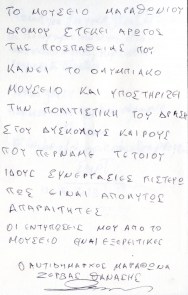 ΤΟ ΜΟΥΣΕΙΟ ΜΑΡΑΘΩΝΙΟΥ
ΔΡΟΜΟΥ ΣΤΕΚΕΙ ΑΡΩΓΟΣ
ΤΗΣ ΠΡΟΣΠΑΘΕΙΑΣ ΠΟΥ
ΚΑΝΕΙ ΤΟ ΟΛΥΜΠΙΑΚΟ
ΜΟΥΣΕΙΟ ΚΑΙ ΥΠΟΣΤΗΡΙΖΕΙ
ΤΗΝ ΠΟΛΙΤΙΣΤΙΚΗ ΤΟΥ ΔΡΑΣΗ
ΣΤΟΥΣ ΔΥΣΚΟΛΟΥΣ ΚΑΙΡΟΥΣ
ΠΟΥ ΠΕΡΝΑΜΕ ΤΕΤΟΙΟΥ
ΙΔΟΥΣ ΣΥΝΕΡΓΑΣΙΕΣ ΠΙΣΤΕΥΩ
ΠΩΣ ΕΙΝΑΙ ΑΠΟΛΥΤΩΣ
ΑΠΑΡΑΙΤΗΤΕΣ
ΟΙ ΕΝΤΥΠΩΣΕΙΣ ΜΟΥ ΑΠΟ ΤΟ
ΜΟΥΣΕΙΟ ΕΙΝΑΙ ΕΞΑΙΡΕΤΙΚΕΣ
Ο ΑΝΤΙΔΗΜΑΡΧΟΣ ΜΑΡΑΘΩΝΑ
ΖΟΡΒΑΣ ΘΑΝΑΣΗΣ